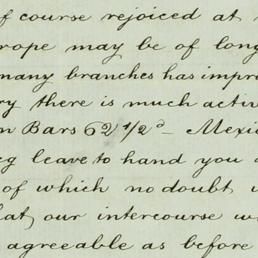 of course rejoiced at
rope may be of long
many branches has impr
ry there is much activ
n Bars 62 1/2d - Mexi
eg leave to hand you
of which no doubt
hat our intercourse w
agreeable as before